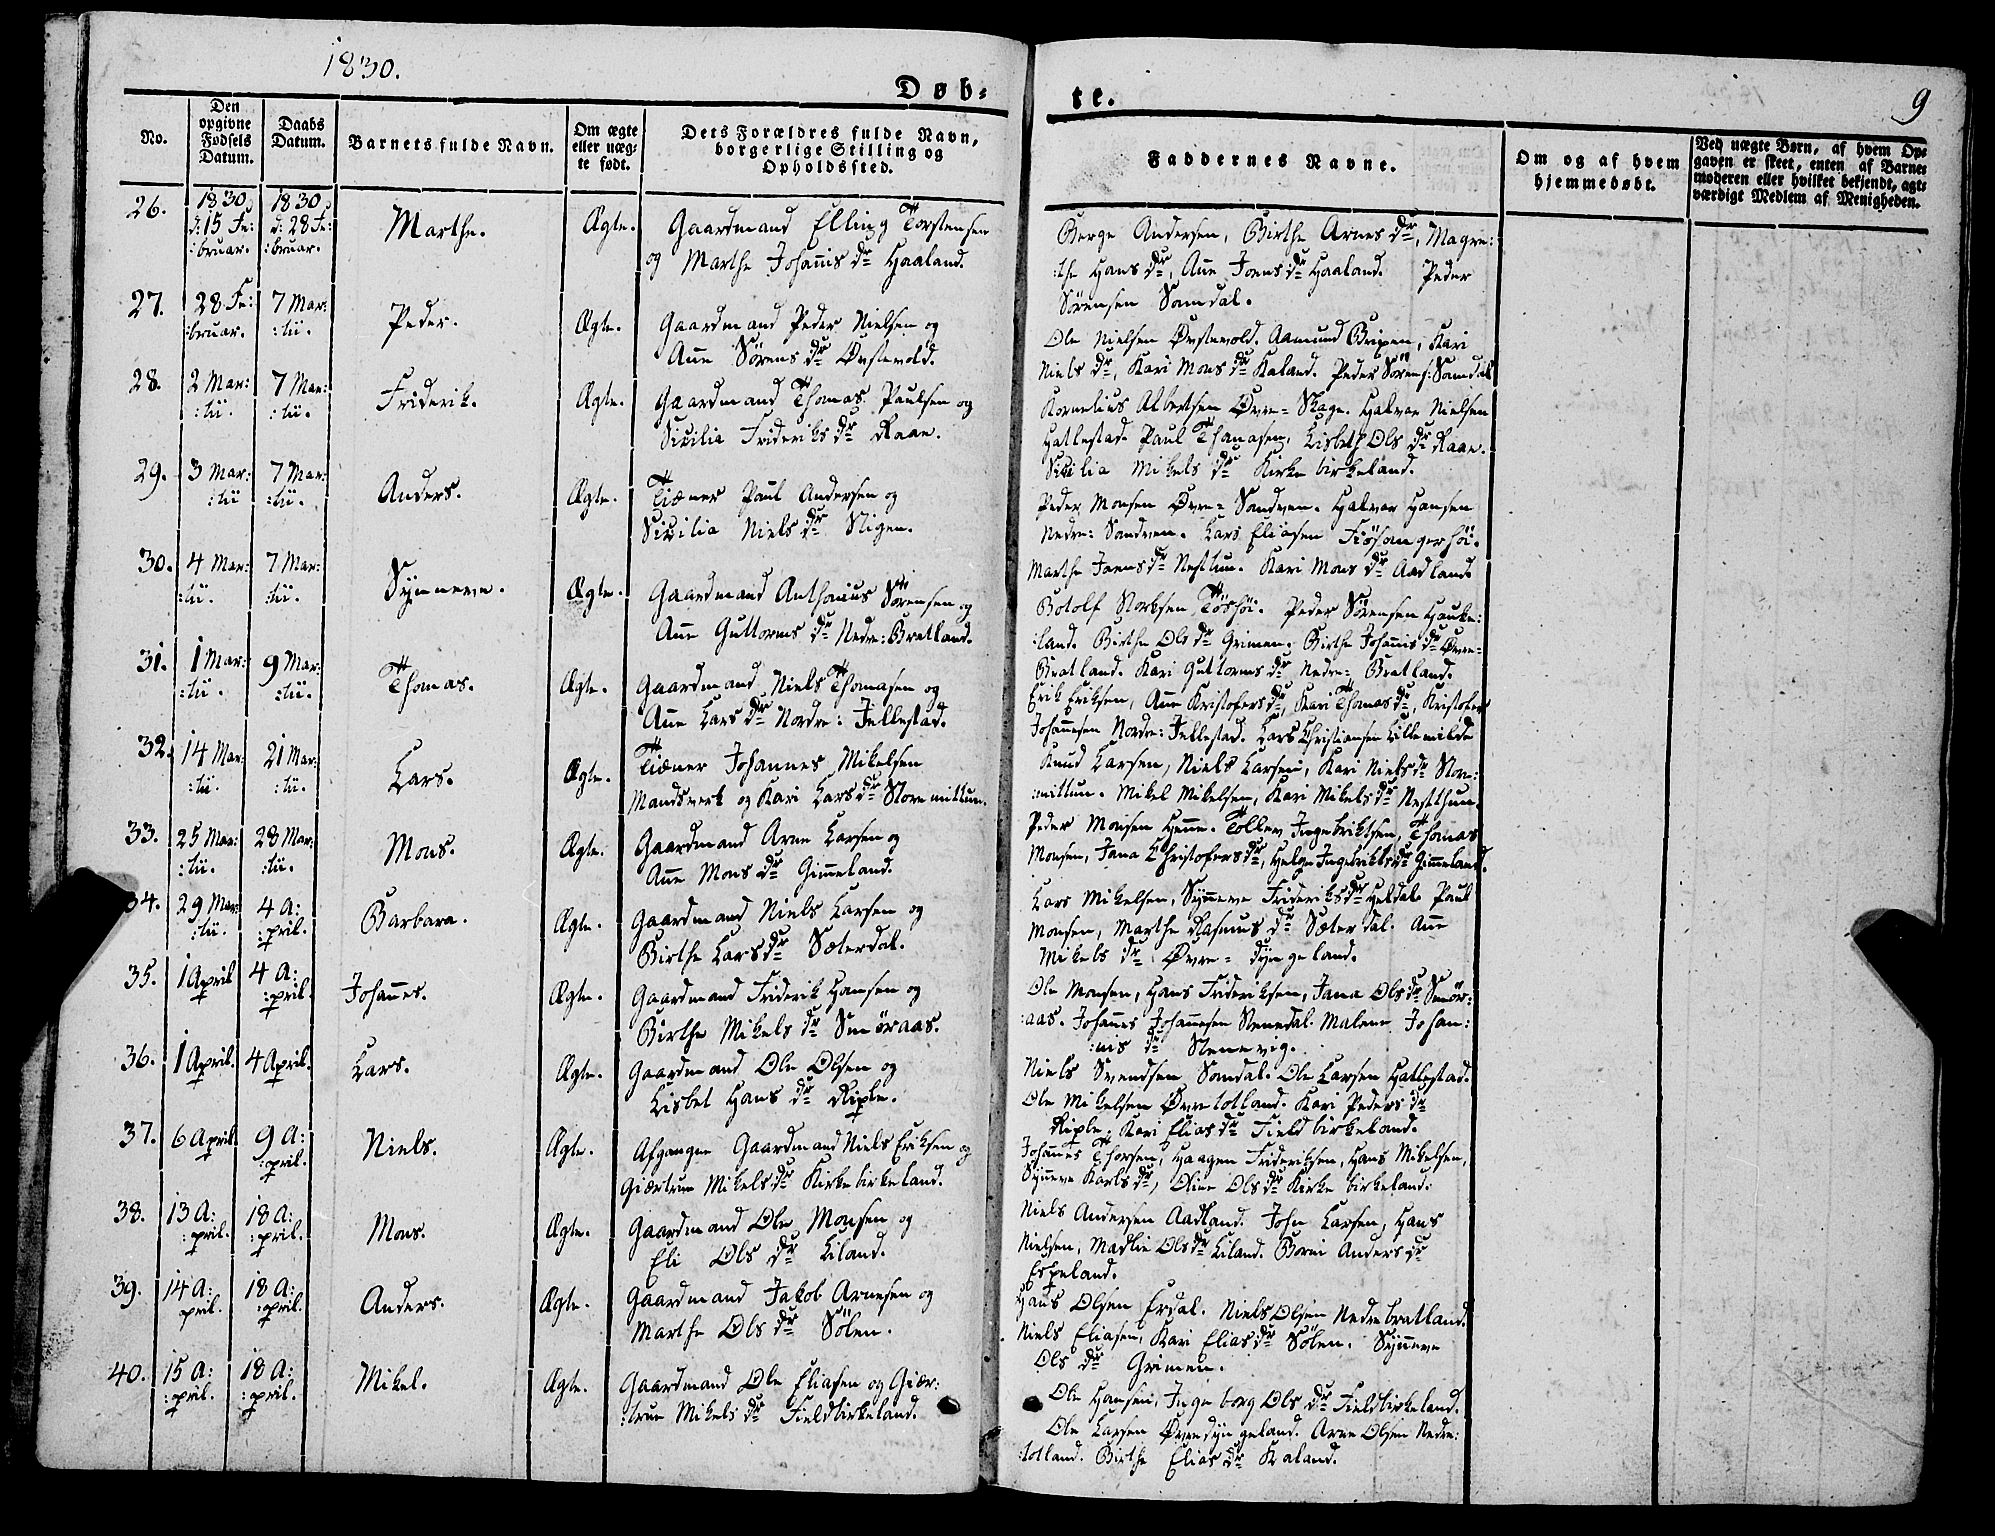 1830.
Døb-
te.
9
No.
Den opgivne Fødsels Datum.
Daabs Datum.
Barnets fulde Navn.
Om ægte eller uægte født.
Dets Forældres fulde Navn, borgerlige Stilling og Opholdssted.
Faddernes Navne.
Om og af hvem hjemmedøbt.
Ved uægte Børn, af hvem Opgaven er skeet, enten af Barnemoderen eller hvilket bekjendt, agtværdigt Medlem af Menigheden.
26. 1830 d: 15 Fe: :bruar. 1830 d: 28 Fe: :bruar. Marthe. Ægte. Gaardmand Elling Torstensen
og Marthe Johañis dr Haaland.
Børge Andersen, Birthe Arnes dr, Magre:
:the Hans dr, Añe Joens dr Haaland. Peder
Sörensen Samdal.
27. 28 Fe: :bruar. 7 Mar: :tii. Peder. Ægte. Gaardmand Peder Nielsen og
Añe Sörens dr Øvstevold.
Ole Nielsen Øvstevold. Aamund Gripen, Kari
Niels dr, Kari Mons dr Kaland. Peder Sörens: Samdal
28. 2 Mar: :tii. 7 Mar: :tii. Friderik. Ægte. Gaardmand Thomas Paulsen og
Sicilia Frideriks dr Raae.
Kornelius Albertsen Øvre= Skage. Halvor Nielsen
Hatlestad. Paul Thomasen, Lisbeth Ols dr Raae.
Sicilia Mikels dr Kirkebirkeland.
29. 3 Mar: :tii 7 Mar: :tii. Anders. Ægte. Tiæner Paul Andersen og
Sicilia Niels dr Stigen.
Peder Monsen Øvre= Sandven. Halvor Hansen
Nedre: Sandven. Lars Eliasen Fiösangerhöi.
Marthe Joens dr Nesttun. Kari Mons dr Aadland.
30. 4 Mar: :tii. 7 Mar: :tii. Synneve. Ægte. Gaardmand Anthonius Sörensen og
Añe Guttorms dr Nedre: Bratland.
Botolf Storksen Töshöi. Peder Sörensen Hauke:
:land. Birthe Ols dr Grimen. Birthe Johañis dr Øvre=
Bratland. Kari Guttorms dr Nedre= Bratland.
31. 1 Mar: :tii. 9 Mar: :tii. Thomas. Ægte. Gaardmand Niels Thomasen og
Añe Lars dr Nordre: Jellestad.
Erik Eriksen, Añe Kristofers dr, Kari Thomas dr, Kristofer
Johañesen Nordre: Jellestad. Lars Christiansen Lillemilde
32. 14 Mar: :tii. 21 Mar: :tii. Lars. Ægte. Tiæner Johannes Mikelsen
Mandsverk og Kari Lars dr Storemittun.
Knud Larsen, Niels Larsen, Kari Niels dr Store:
:mittun. Mikel Mikelsen, Kari Mikels dr Nestthun
33. 25 Mar: :tii. 28 Mar: :tii. Mons. Ægte. Gaardmand Arne Larsen og
Añe Mons dr Gim̃eland.
Peder Monsen Hiñe. Tollev Ingebriktsen, Thomas
Monsen, Jana Christofers dr, Helge Ingebrikts dr Gim̃eland.
34. 29 Mar: :tii. 4 A: :pril. Barbara. Ægte. Gaardmand Niels Larsen og
Birthe Lars dr Sæterdal.
Lars Mikelsen, Syñeve Frideriks dr Heldal. Paul
Monsen, Marthe Rasmus dr Sæterdal. Añe
Mikels dr Øvre= dyngeland.
35. 1 April 4 A: :pril. Johañes. Ægte. Gaardmand Friderik Hansen og
Birthe Mikels dr Smöraas.
Ole Monsen, Hans Frideriksen, Jana Ols dr Smör:
:aas. Johañes Johañesen Stenedal. Malene Johan:
:nis dr Stenevig.
36. 1 April. 4 April. Lars. Ægte. Gaardmand Ole Olsen og
Lisbet Hans dr Riple.
Niels Svendsen Sandal. Ole Larsen Hatlestad.
Ole Mikelsen Øvretotland. Kari Peders dr
Riple. Kari Elias dr Fieldbirkeland.
37. 6 April. 9 A: :pril. Niels. Ægte. Afgangne Gaardmand Niels Eriksen og
Giærtrue Mikels dr Kirkebirkeland.
Johañes Thorsen, Haagen Frideriksen, Hans Mikelsen,
Syñeve Karls dr, Oline Ols dr Kirke birkeland.
38. 13 A: :pril. 18 A: :pril. Mons. Ægte. Gaardmand Ole Monsen og
Eli Ols dr Liland.
Niels Andersen Aadland. John Larsen, Hans
Nielsen, Madlie Ols dr Liland. Borni Anders dr
Espeland.
39. 14 A: pril. 18 A: :pril. Anders. Ægte. Gaardmand Jakob Arnesen og
Marthe Ols dr Sölen.
Hans Olsen Erdal. Niels Olsen Nedrebratland.
Niels Eliasen, Kari Elias dr Sölen. Syñeve
Ols dr Grimen.
40. 15 A: :pril. 18 A: :pril. Mikel. Ægte. Gaardmand Ole Eliasen og Giær:
:true Mikels dr Fieldbirkeland.
Ole Hansen, Ingeborg Ols dr Fieldbirkeland.
Ole Larsen Øvredyngeland. Arne Olsen Nedre:
:totland. Birthe Elias dr Kaland.